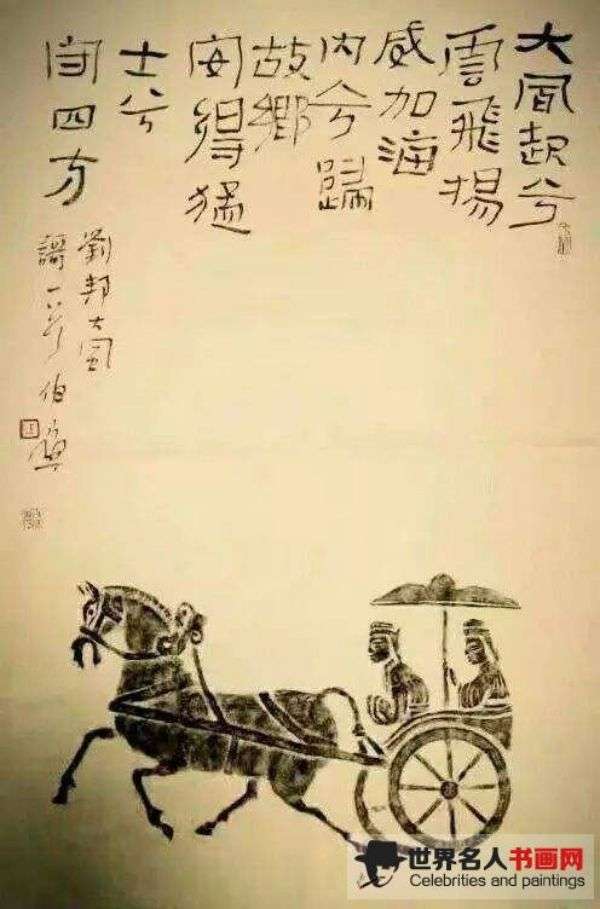 大風起兮
雲飛揚
威加海
内兮歸
故鄉
安得猛
士兮
守四方
劉邦大風
謌
世界名人书画网
Celebrities and paintings